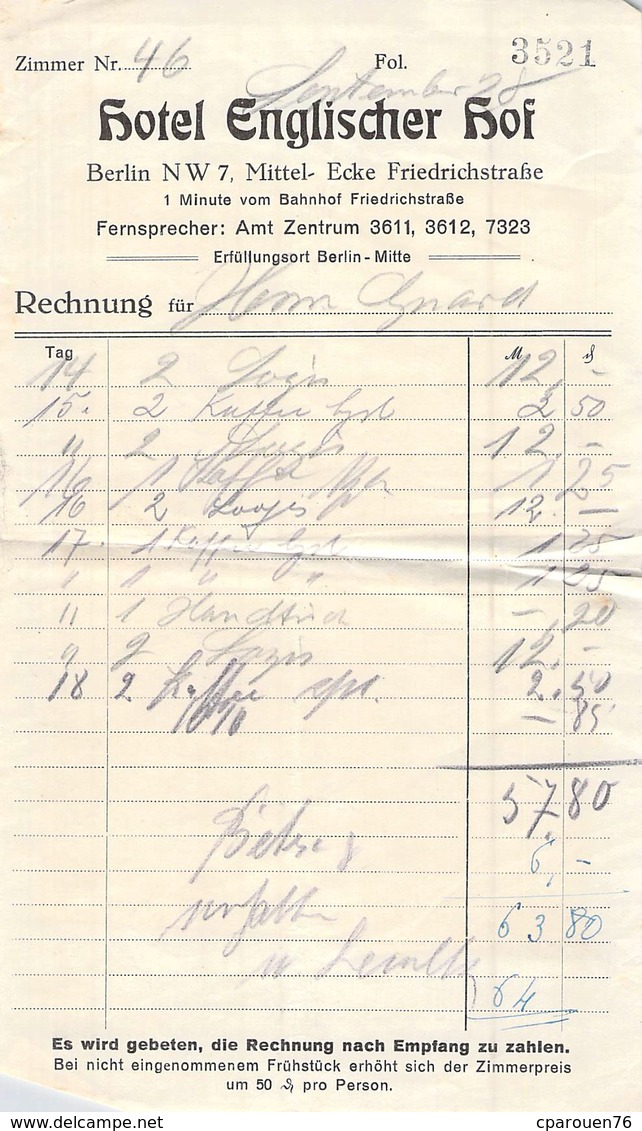 Zimmer Nr. 46 Fol. 3521
September 28
Hotel Englischer Hof
Berlin NW 7, Mittel- Ecke Friedrichstraße
1 Minute vom Bahnhof Friedrichstraße
Fernsprecher: Amt Zentrum 3611, 3612, 7323
Erfüllungsort Berlin-Mitte
Rechnung für Herrn
Tag M ₰
14 2 Logis 12,-
15. 2 Kaffee 2 50
" 2 Logis 12,-
16 1 1 25
16 2 Logis 12.-
17. 1 Kaffee 1 25
" 1 " " 1 25
" 1 Handtuch -,20
" 2 Logis 12.-
18 2 Kaffee 2.50
10% - 85
57.80
6,-
63 80
64
Es wird gebeten, die Rechnung nach Empfang zu zahlen.
Bei nicht eingenommenem Frühstück erhöht sich der Zimmerpreis
um 50 ₰ pro Person.
cparouen76